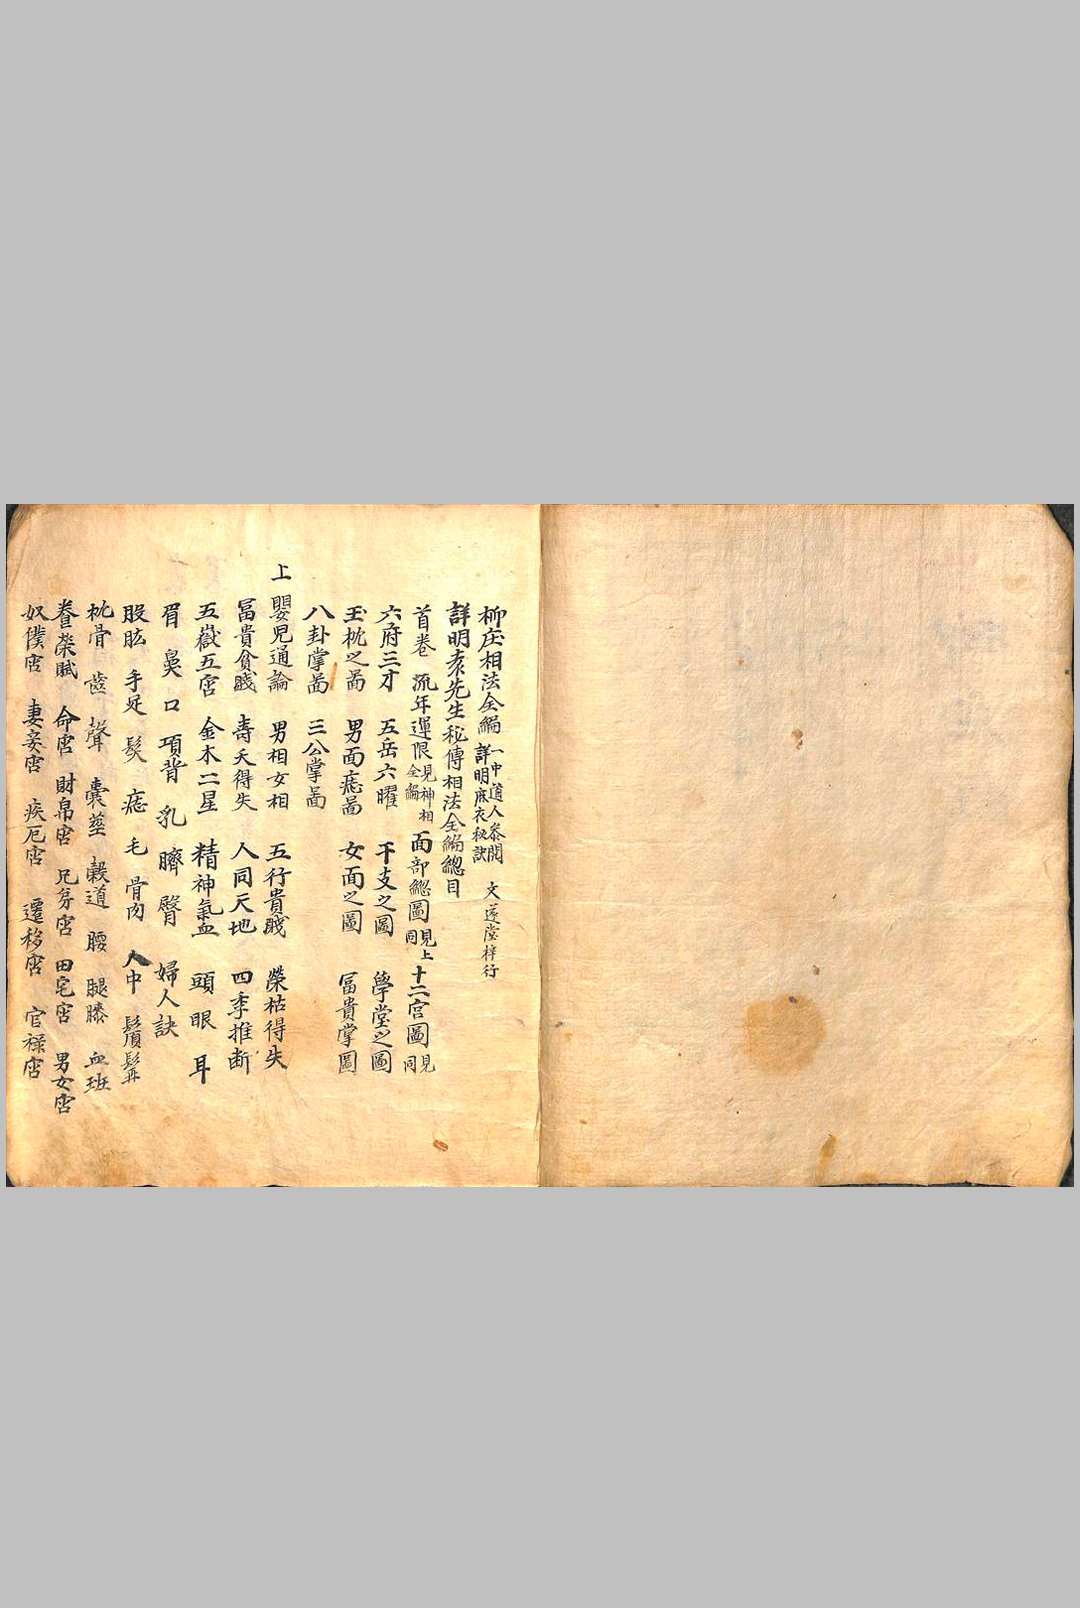 柳庄相法全編 一中道人叅閲 詳明麻衣秘訣 文遂堂梓行
詳明袁先生秘傳相法全編緫目
首卷 流年運限 見神相全編 面部緫圖 見上同 十二宫圖 見同
六府三才 五岳六曜 干支之圖 學堂之圖
玉枕之啚 男面痣啚 女面之圖 冨貴掌圖
八卦掌啚 三公掌啚
上 嬰児通論 男相女相 五行貴賤 榮枯得失
冨貴貧賤 壽夭得失 人同天地 四季推断
五嶽五宫 金木二星 精神氣血 頭 眼 耳
眉 鼻 口 項背 乳 臍 臀 婦人訣
股肱 手足 髮 痣 毛 骨肉 人中 鬚髯
枕骨 齒 聲 囊莖 穀道 腰 腿膝 血班
養榮賦 命宫 財帛宫 兄弟宫 田宅宫 男女宫
奴僕宫 妻妾宫 疾厄宫 遷移宫 官禄宫